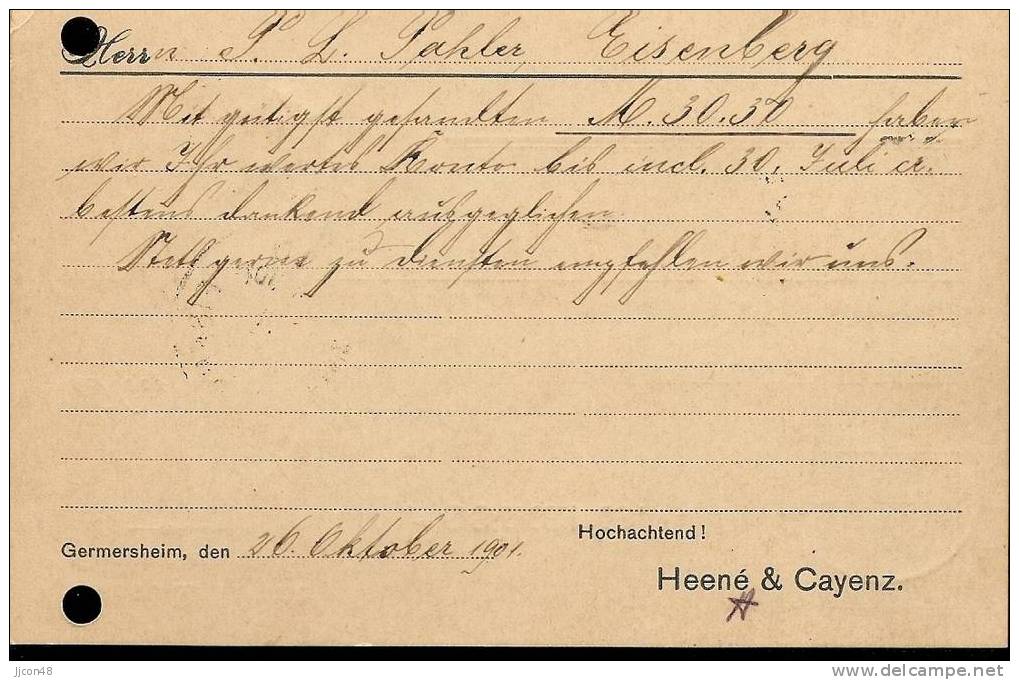 Herrn P. L. Pahler, Eisenberg
Mit gütigst gesandten M. 30.30 haben
wir Ihr wertes Konto bis incl. 30. Juli cr.
bestens dankend ausgeglichen.
Stets gerne zu Diensten empfehlen wir uns.
Hochachtend!
Germersheim, den 26. Oktober 1901.
Heené & Cayenz.
jjcon48
www.delcampe.net